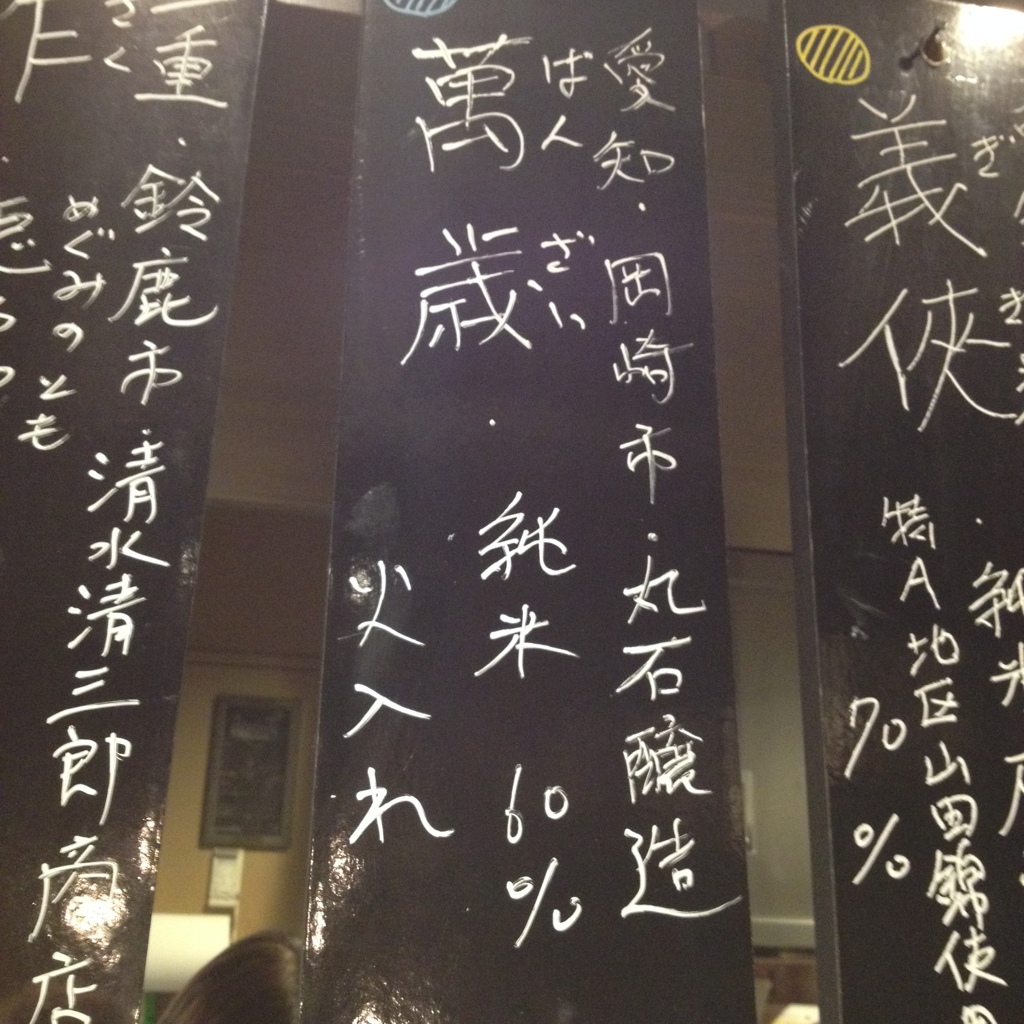 義侠
ぎ
特A地区山田錦使
70%
愛知・岡崎市・丸石醸造
萬歳・純米60%
ばんざい
火入れ
三重・鈴鹿市・清水清三郎商店
めぐみのとも
作
ざく